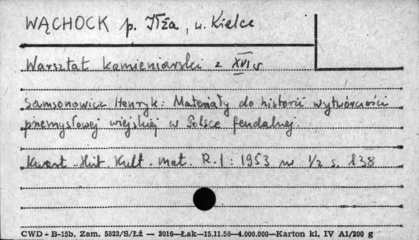 WĄCHOCK p. Iłża, w. Kielce
Warsztat kamieniarski z XVI w
Samsonowicz Henryk: Materiały do historii wytwórczości
przemysłowej wiejskiej w Polsce feudalnej.
Kwart. Hist. Kult. mat. R. I: 1953 nr 1/2 s. 138
CWD - B-15b. Zam. 5823/S/Łż — 3016—Łak—15.11.56—4.000.000—Karton kl. IV A1/200 g